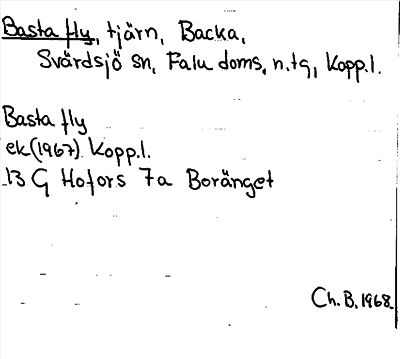 Basta fly, tjärn, Backa,
Svärdsjö sn, Falu doms. n.tg, Kopp.l.
Basta fly
ek(1967) Kopp.l.
13 G Hofors 7a Boränget
Ch.B.1968.